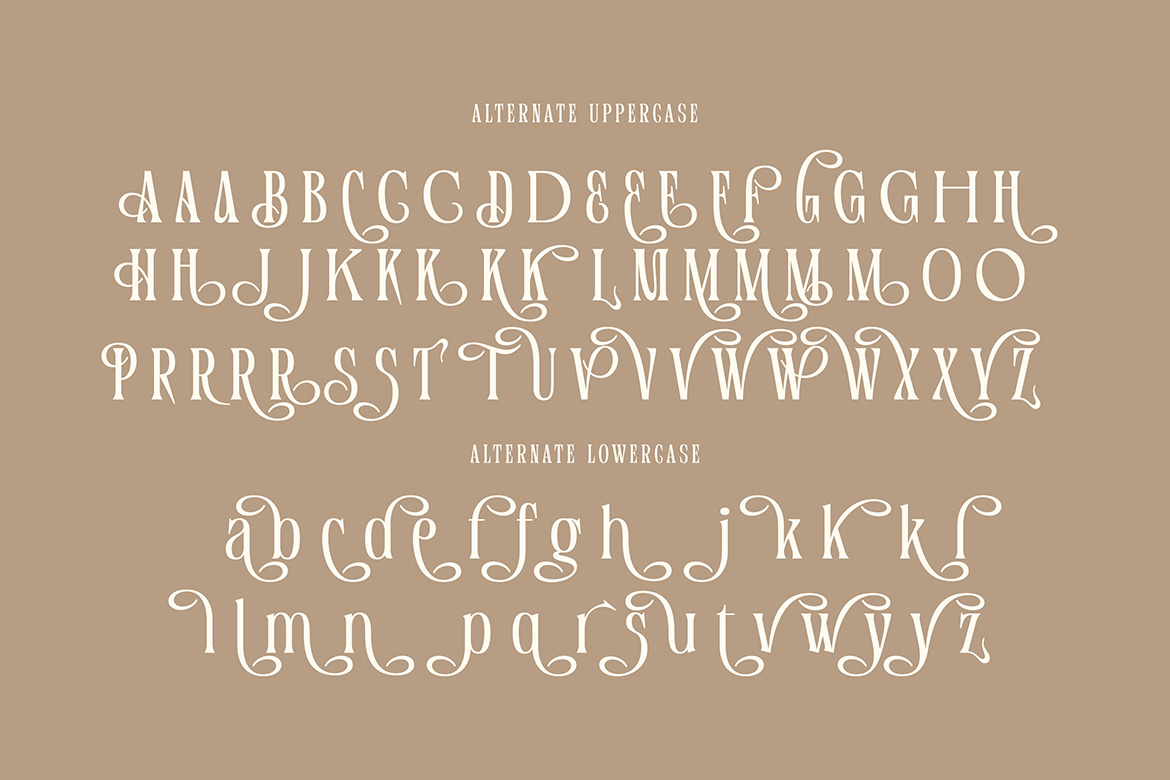 ALTERNATE UPPERCASE
AAABBCCCDDEEEFFGGGHH
HHJJKKKKKLMMMMMOO
PRRRRSSTTUVVVWWWXXYZ
ALTERNATE LOWERCASE
abcdeffghjkkkl
llmnpqrsutvwyyz